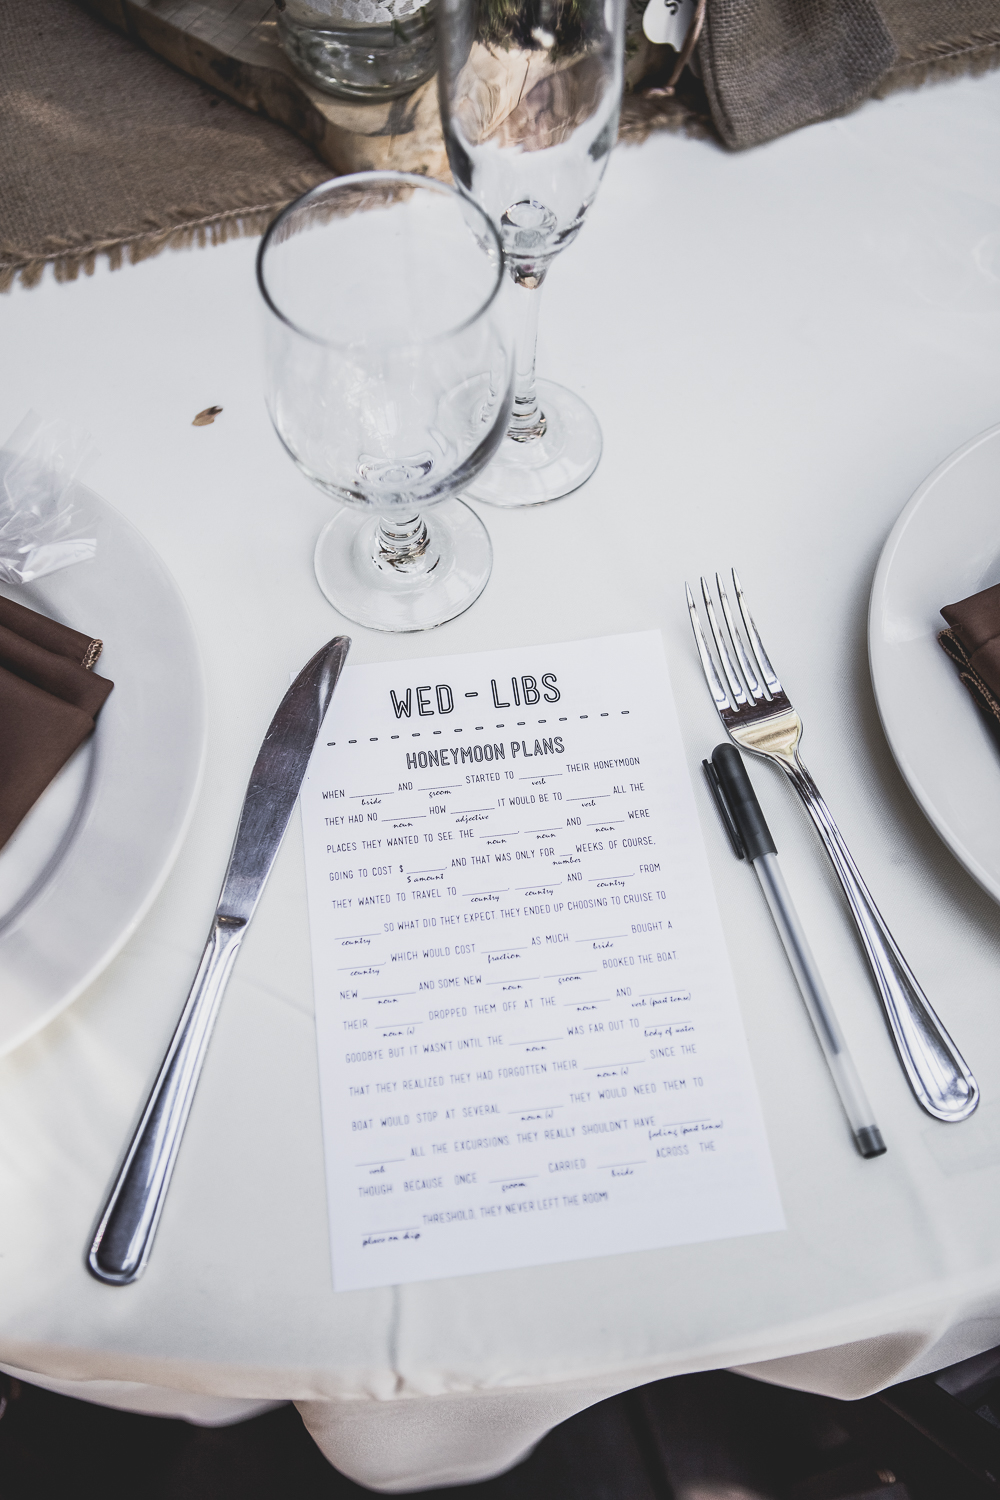 WED - LIBS
HONEYMOON PLANS
WHEN ________ AND ________ STARTED TO ________ THEIR HONEYMOON
bride groom verb
THEY HAD NO ________ HOW ________ IT WOULD BE TO ________ ALL THE
noun adjective verb
PLACES THEY WANTED TO SEE THE ________, ________ AND ________ WERE
noun noun noun
GOING TO COST $ ________, AND THAT WAS ONLY FOR __ WEEKS OF COURSE,
$ amount number
THEY WANTED TO TRAVEL TO ________, ________ AND ________ FROM
country country country
________ SO WHAT DID THEY EXPECT. THEY ENDED UP CHOOSING TO CRUISE TO
country
________, WHICH WOULD COST ________ AS MUCH. ________ BOUGHT A
country fraction bride
NEW ________ AND SOME NEW ________. ________ BOOKED THE BOAT
noun noun groom
THEIR ________ DROPPED THEM OFF AT THE ________ AND ________
noun (s) noun verb (past tense)
GOODBYE BUT IT WASN'T UNTIL THE ________ WAS FAR OUT TO ________
noun body of water
THAT THEY REALIZED THEY HAD FORGOTTEN THEIR ________ SINCE THE
noun (s)
BOAT WOULD STOP AT SEVERAL ________ THEY WOULD NEED THEM TO
noun (s)
________ ALL THE EXCURSIONS THEY REALLY SHOULDN'T HAVE ________
verb feeling (past tense)
THOUGH, BECAUSE ONCE ________ CARRIED ________ ACROSS THE
groom bride
________ THRESHOLD, THEY NEVER LEFT THE ROOM!
place on ship